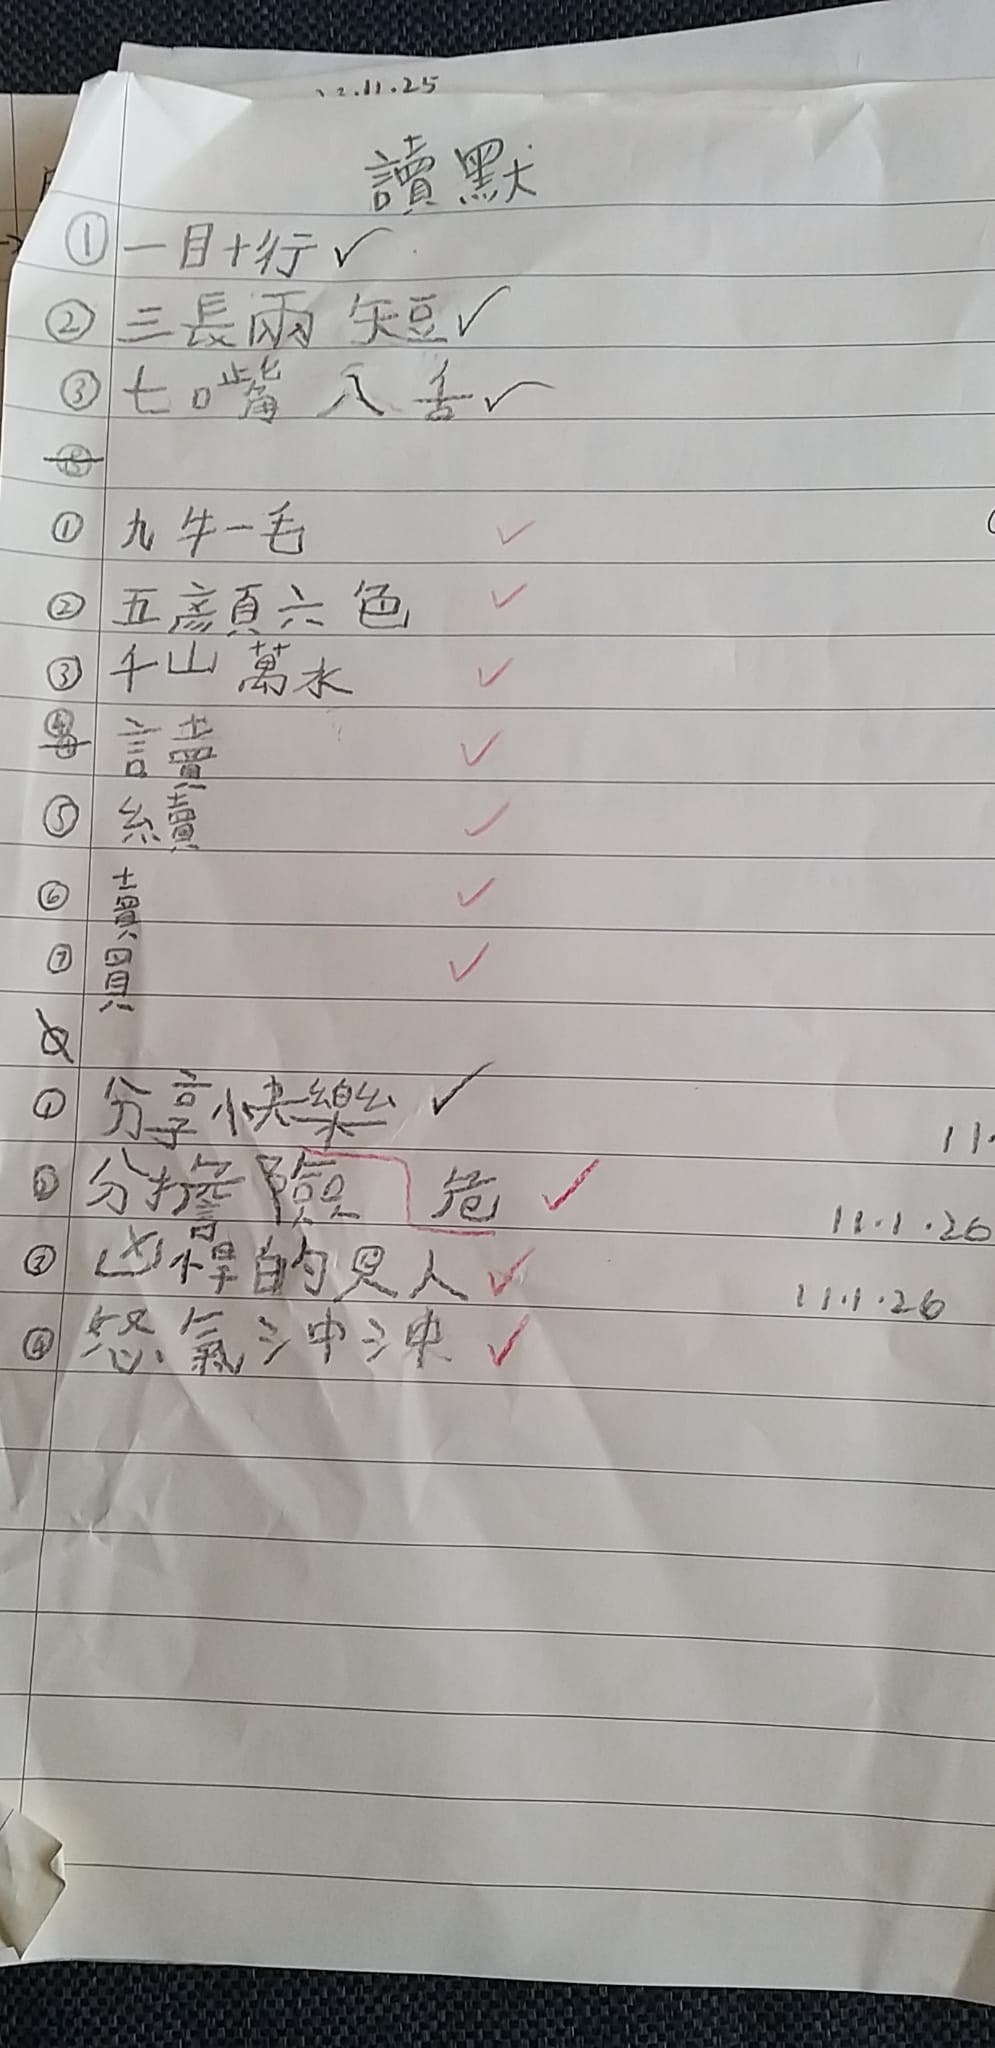 .11.25
讀默
① 一目十行 ✓
② 三長兩短 ✓
③ 七嘴八舌 ✓
① 九牛一毛 ✓
② 五顏六色 ✓
③ 千山萬水 ✓
④ 讀 ✓
⑤ 續 ✓
⑥ 賣 ✓
⑦ 買 ✓
① 分享快樂 ✓
11.
② 分擔險危 ✓ 11.1.26
③ 凶悍的男人 ✓ 11.1.26
④ 怒氣沖沖 ✓